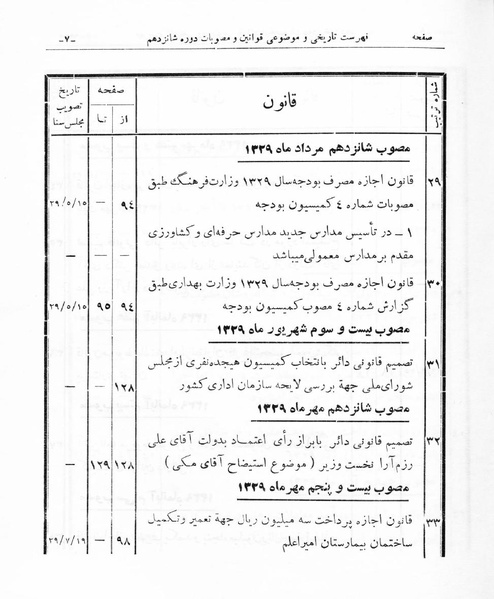 صفحه فهرست تاریخی و موضوعی قوانین و مصوبات دوره شانزدهم -۷-
شماره ترتیب قانون صفحه تاریخ تصویب مجلس سنا
از تا
مصوب شانزدهم مرداد ماه ۱۳۲۹
۲۹ قانون اجازه مصرف بودجه سال ۱۳۲۹ وزارت فرهنگ طبق
مصوبات شماره ۴ کمیسیون بودجه ۹۴ — ۲۹/۵/۱۵
۱ ـ در تأسیس مدارس جدید مدارس حرفه‌ای و کشاورزی
مقدم بر مدارس معمولی میباشد — — —
۳۰ قانون اجازه مصرف بودجه سال ۱۳۲۹ وزارت بهداری طبق
گزارش شماره ۴ مصوب کمیسیون بودجه ۹۴ ۹۵ ۲۹/۵/۱۵
مصوب بیست و سوم شهریور ماه ۱۳۲۹
۳۱ تصمیم قانونی دائر بانتخاب کمیسیون هیجده نفری از مجلس
شورای ملی جهة بررسی لایحه سازمان اداری کشور ۱۲۸ — —
مصوب شانزدهم مهر ماه ۱۳۲۹
۳۲ تصمیم قانونی دائر بابراز رأی اعتماد بدولت آقای علی
رزم آرا نخست وزیر ( موضوع استیضاح آقای مکی ) ۱۲۸ ۱۲۹ —
مصوب بیست و پنجم مهر ماه ۱۳۲۹
۳۳ قانون اجازه پرداخت سه میلیون ریال جهة تعمیر و تکمیل
ساختمان بیمارستان امیراعلم ۹۸ — ۲۹/۷/۱۹